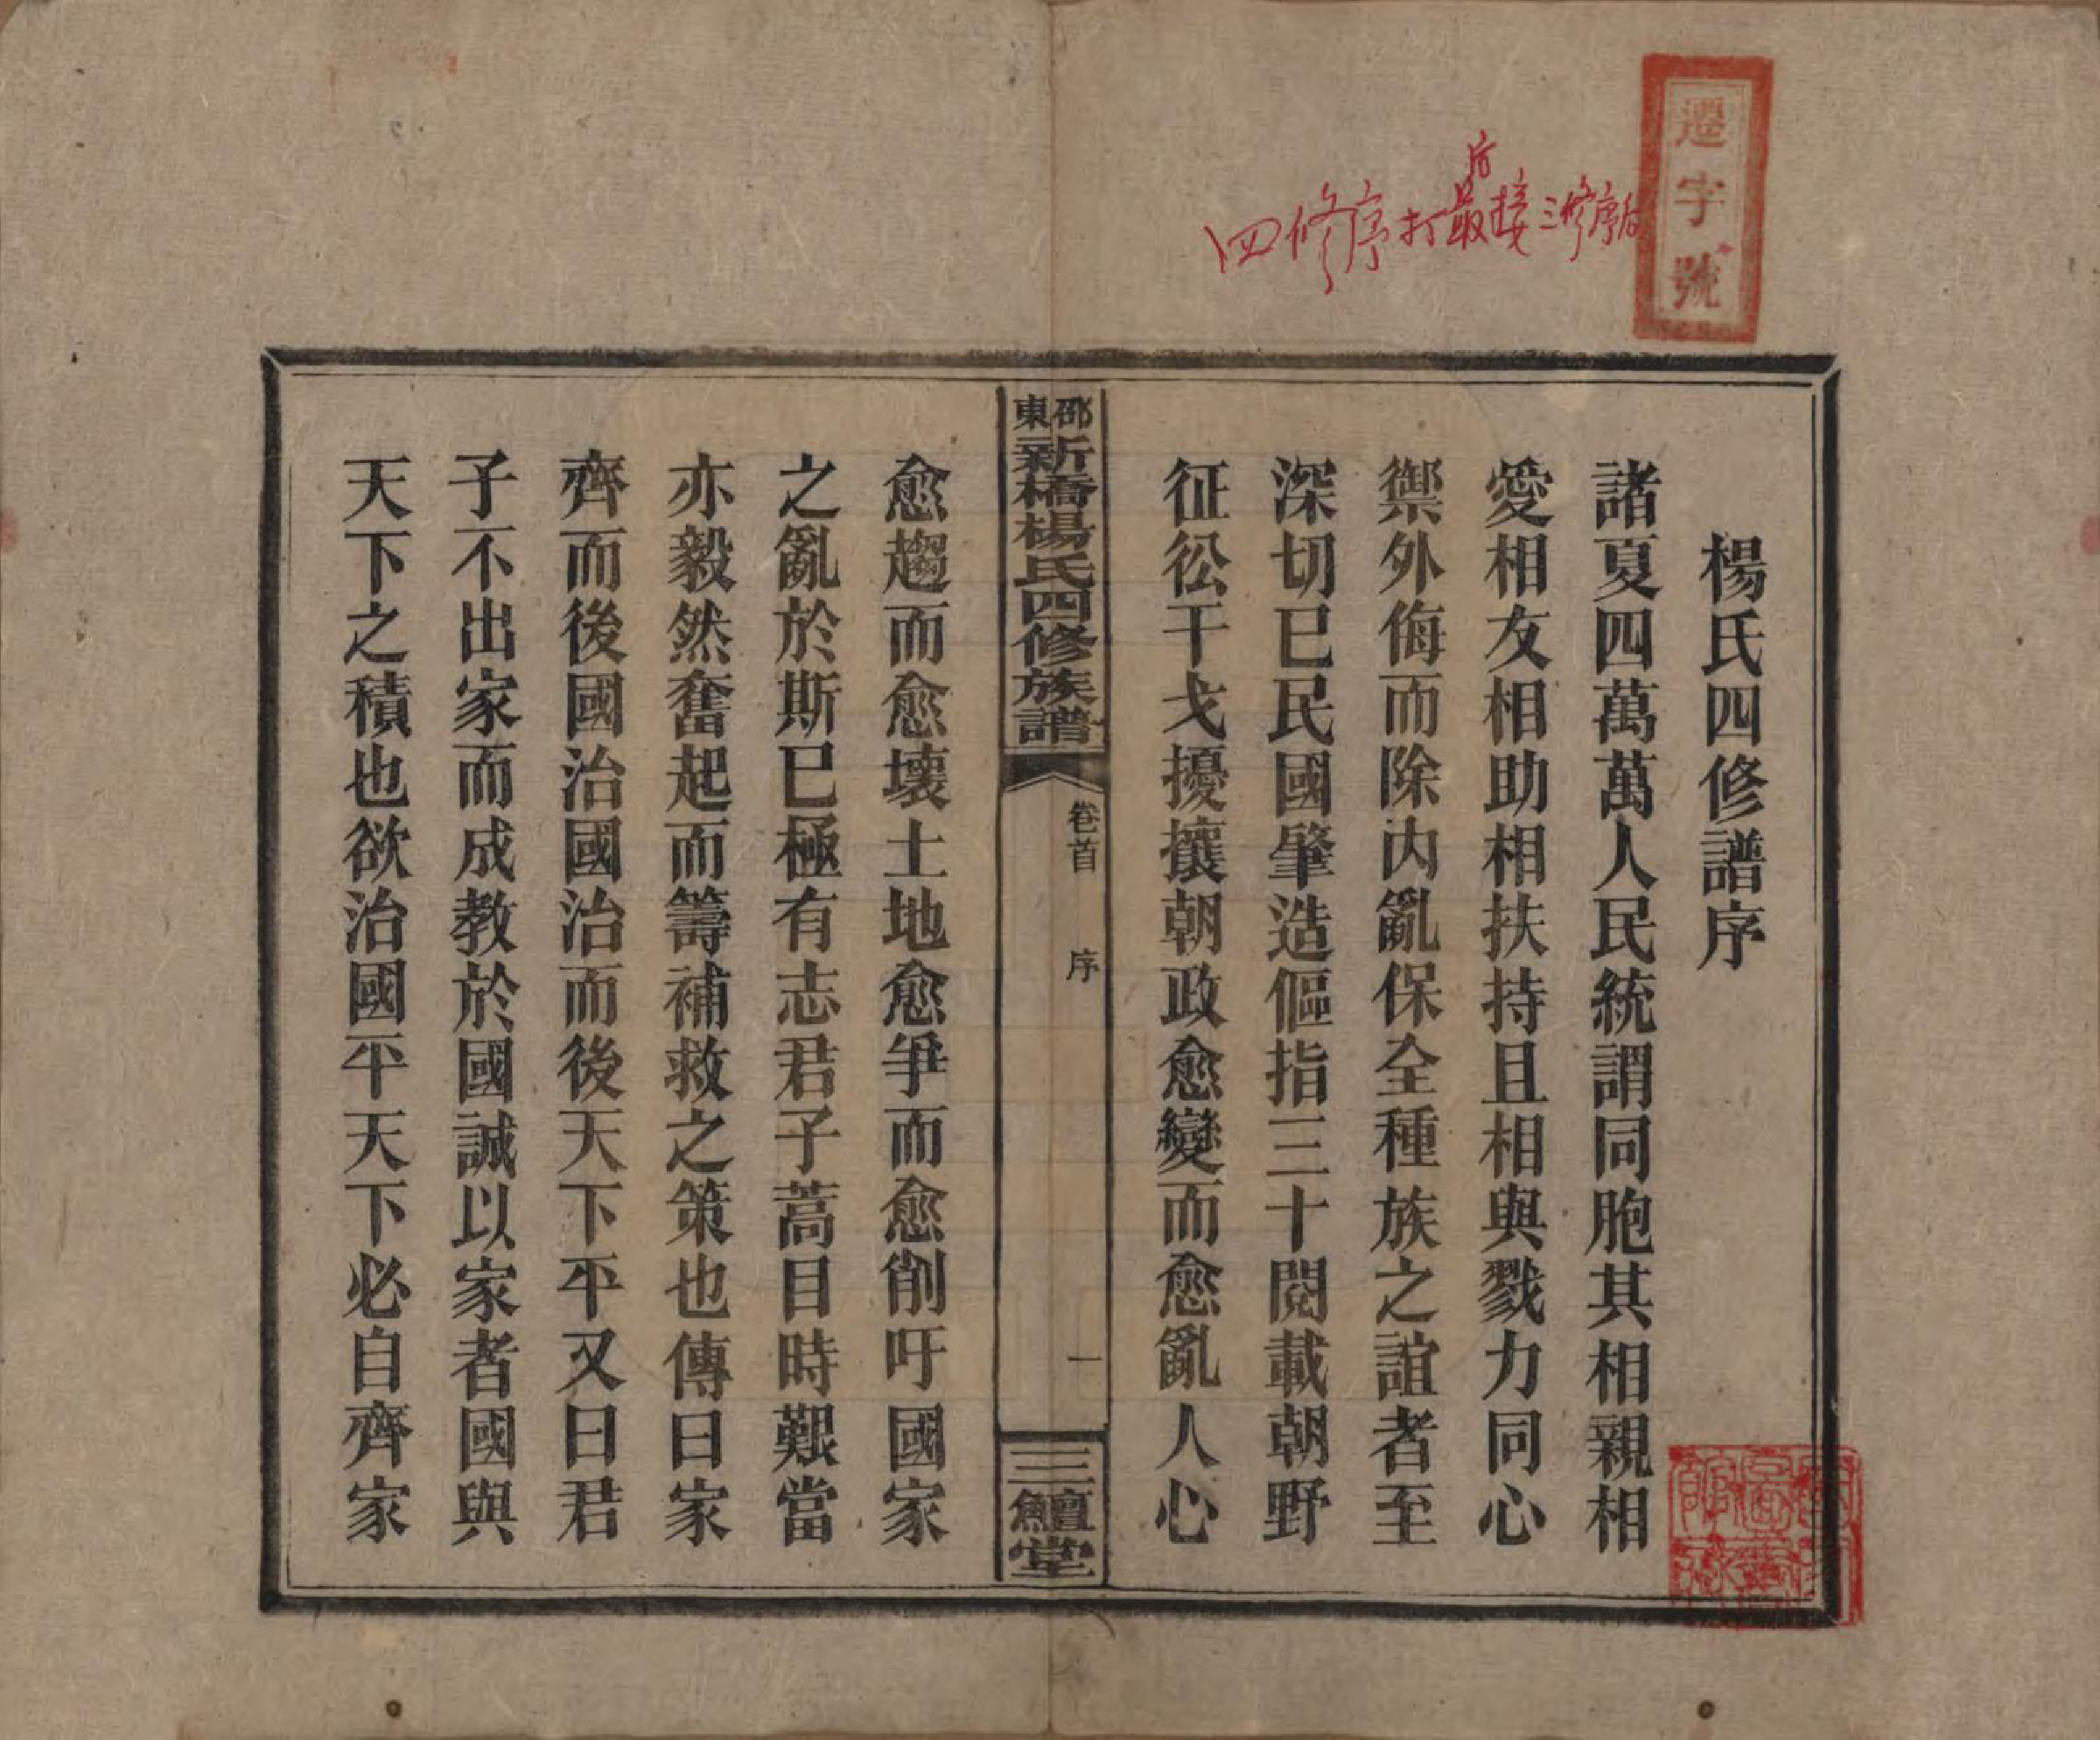 遷字號
四修序打最后接三修序后
楊氏四修譜序
諸夏四萬萬人民統謂同胞其相親相
愛相友相助相扶持且相與戮力同心
禦外侮而除內亂保全種族之誼者至
深切已民國肇造傴指三十閱載朝野
征彸干戈擾攘朝政愈變而愈亂人心
邵東新橋楊氏四修族譜
卷首 序 一
三鱣堂
愈趨而愈壞土地愈爭而愈削吁國家
之亂於斯已極有志君子蒿目時艱當
亦毅然奮起而籌補救之策也傳曰家
齊而後國治國治而後天下平又曰君
子不出家而成教於國誠以家者國與
天下之積也欲治國平天下必自齊家